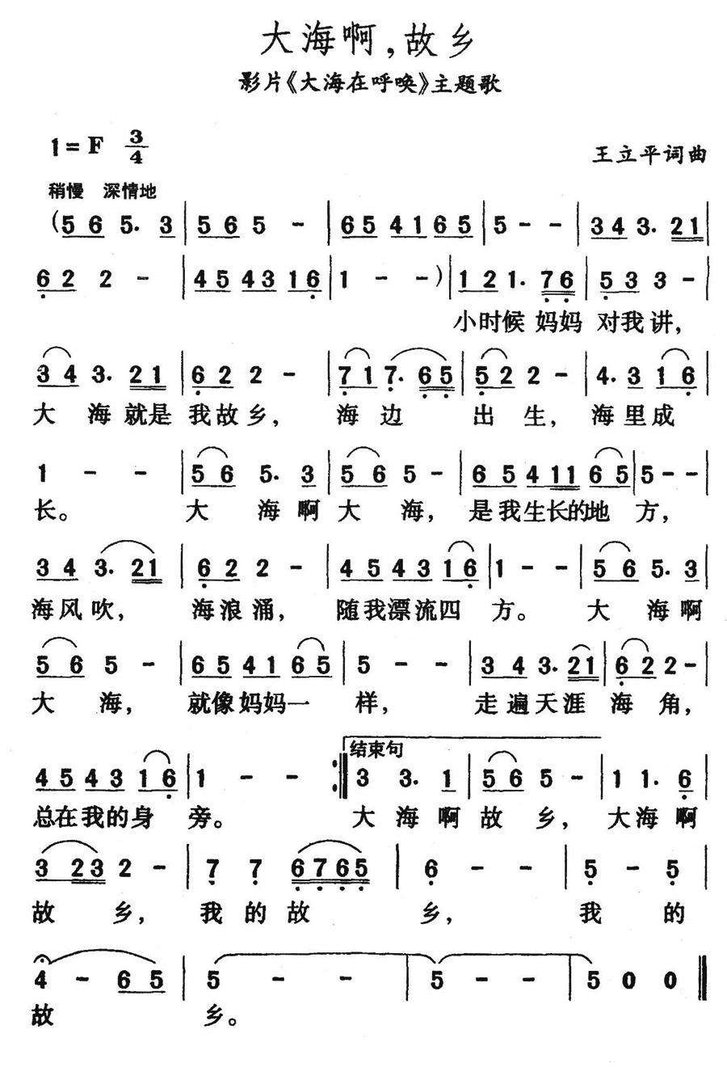 大海啊，故乡
影片《大海在呼唤》主题歌
1=F 3/4
王立平词曲
稍慢 深情地
(5 6 5. 3 | 5 6 5 - - | 6 5 4 1 6 5 | 5 - - | 3 4 3. 2 1 |
6 2 2 - | 4 5 4 3 1 6 | 1 - - ) | 1 2 1. 7 6 | 5 3 3 - |
小时候 妈妈 对我讲，
3 4 3. 2 1 | 6 2 2 - | 7 1 7. 6 5 | 5 2 2 - | 4. 3 1 6 |
大 海 就是 我故乡， 海 边 出 生， 海里成
1 - - | 5 6 5. 3 | 5 6 5 - | 6 5 4 1 1 6 5 | 5 - - |
长。 大 海啊 大 海， 是我生长的地 方，
3 4 3. 2 1 | 6 2 2 - | 4 5 4 3 1 6 | 1 - - | 5 6 5. 3 |
海风吹， 海浪涌， 随我漂流四 方。 大 海啊
5 6 5 - | 6 5 4 1 6 5 | 5 - - | 3 4 3. 2 1 | 6 2 2 -
大 海， 就像妈妈一 样， 走遍天涯 海 角，
结束句
4 5 4 3 1 6 | 1 - - :‖ 3 3. 1 | 5 6 5 - | 1 1. 6 |
总在我的身 旁。 大 海 啊 故 乡， 大海啊
3 2 3 2 - | 7 7 6 7 6 5 | 6 - - | 5 - 5 |
故 乡， 我 的 故 乡， 我 的
4 - 6 5 | 5 - - | 5 - - | 5 0 0 ‖
故 乡。